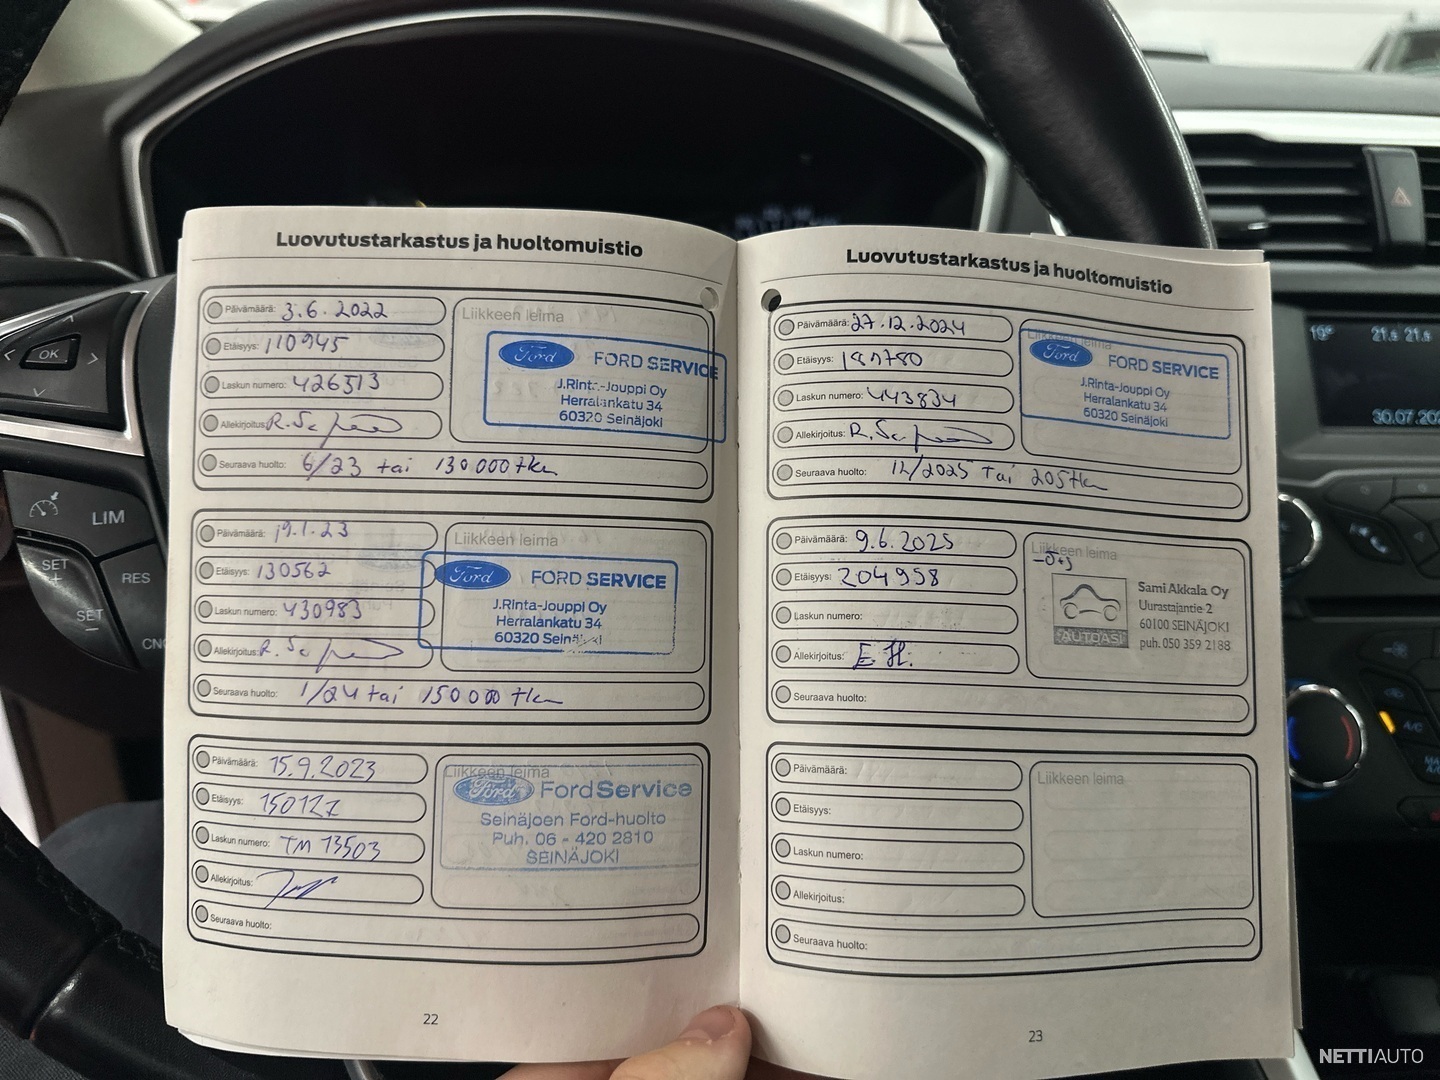 Luovutustarkastus ja huoltomuistio
Päivämäärä: 3.6.2022
Etäisyys: 110945
Laskun numero: 426513
Allekirjoitus:
Seuraava huolto: 6/23 tai 130 000 tkm
Liikkeen leima
Ford FORD SERVICE
J.Rinta-Jouppi Oy
Herralankatu 34
60320 Seinäjoki
Päivämäärä: 19.1.23
Etäisyys: 130562
Laskun numero: 430983
Allekirjoitus:
Seuraava huolto: 1/24 tai 150 000 tkm
Liikkeen leima
Ford FORD SERVICE
J.Rinta-Jouppi Oy
Herralankatu 34
60320 Seinäjoki
Päivämäärä: 15.9.2023
Etäisyys: 150127
Laskun numero: TM 13503
Allekirjoitus:
Seuraava huolto:
Liikkeen leima
Ford FordService
Seinäjoen Ford-huolto
Puh. 06 - 420 2810
SEINÄJOKI
22
Luovutustarkastus ja huoltomuistio
Päivämäärä: 27.12.2024
Etäisyys:
Laskun numero: 443834
Allekirjoitus:
Seuraava huolto: 12/2025 tai 205 tkm
Liikkeen leima
Ford FORD SERVICE
J.Rinta-Jouppi Oy
Herralankatu 34
60320 Seinäjoki
Päivämäärä: 9.6.2025
Etäisyys: 204958
Laskun numero:
Allekirjoitus: E H.
Seuraava huolto:
Liikkeen leima
AUTOASI
Sami Akkala Oy
Uurastajantie 2
60100 SEINÄJOKI
puh. 050 359 2188
Päivämäärä:
Etäisyys:
Laskun numero:
Allekirjoitus:
Seuraava huolto:
Liikkeen leima
23
OK
LIM
SET
+
RES
SET
-
16°
21.5 21.5
30.07
A/C
NETTIAUTO